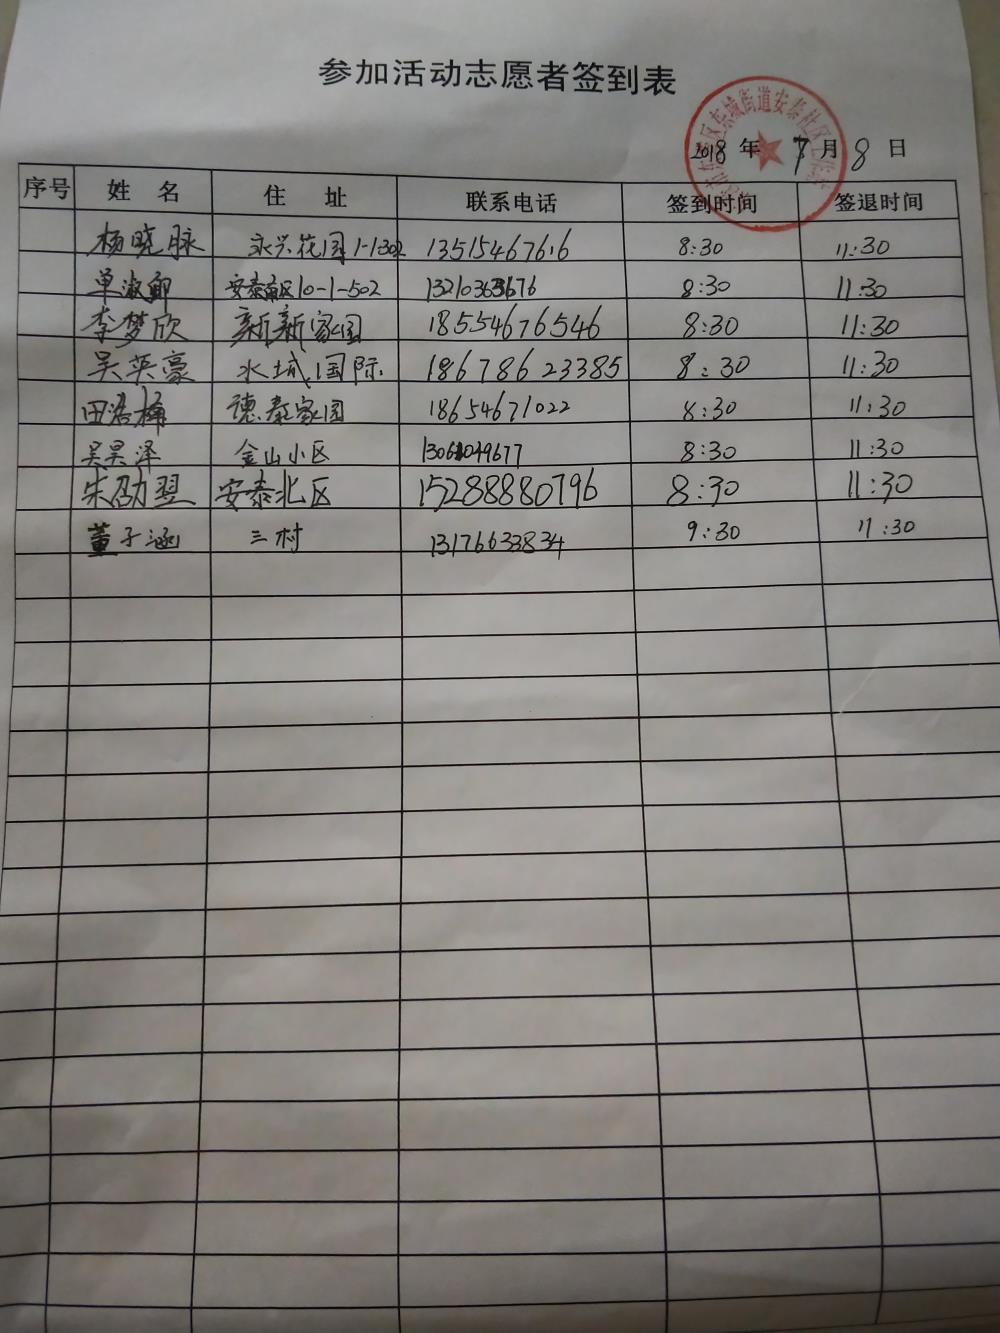 参加活动志愿者签到表
2018年7月8日
序号 姓名 住址 联系电话 签到时间 签退时间
杨晓脉 永兴花园1-1-302 13515467616 8:30 11:30
单淑 安泰南区10-1-502 8:30 11:30
李梦欣 新新家园 18554676546 8:30 11:30
吴英豪 水城国际 18678623385 8:30 11:30
田浩楠 德泰家园 18654671022 8:30 11:30
吴昊泽 金山小区 8:30 11:30
朱劭翌 安泰北区 15288880796 8:30 11:30
董子涵 三村 13176633834 9:30 11:30